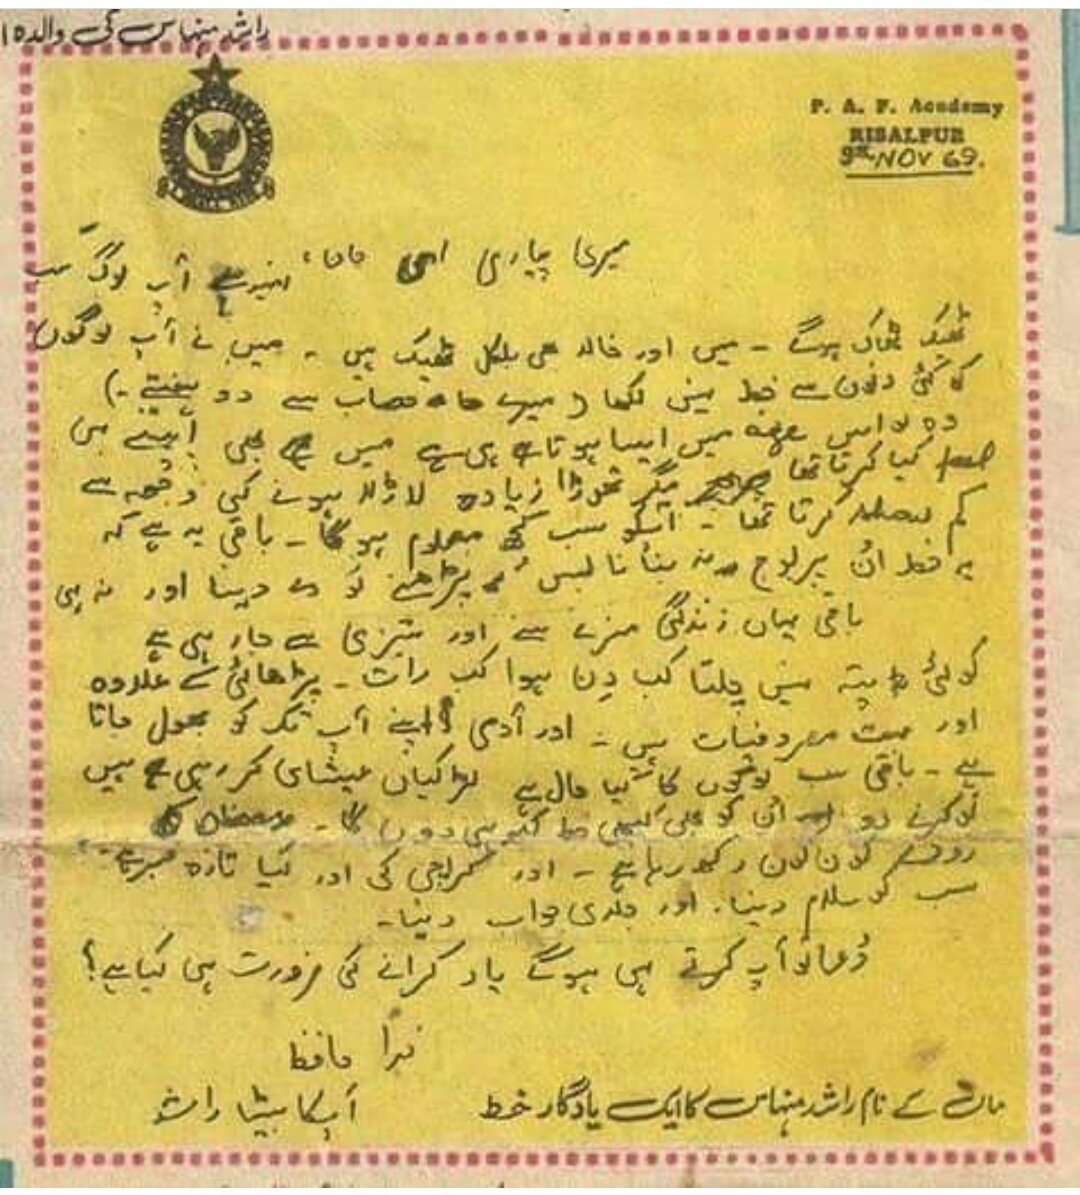 راشد منہاس کی والدہ
P. A. F. Academy
RISALPUR
9th NOV 69.
میری پیاری امی جان،
امید ہے آپ لوگ سب
ٹھیک ٹھاک ہونگے ۔ میں اور خالد بھی بلکل ٹھیک ہیں ۔ میں نے آپ لوگوں
کو کئی دنوں سے خط نہیں لکھا ( میرے حساب سے دو ہفتے ۔)
میں ایسا ہوتا ہی ہے میں بھی
کیا کرتا تھا مگر تھوڑا زیادہ لاڈلا ہونے کی وجہ سے
کم کرتا تھا ۔ آپکو سب کچھ معلوم ہو گا ۔ باقی یہ ہے کہ
یہ خط ان پر نہ بنانا بس پڑھنے کو دے دینا اور نہ ہی
باقی یہاں زندگی مزے سے اور تیزی سے جا رہی ہے
کوئی پتہ نہیں چلتا کب دِن ہوا کب رات ۔ پڑھائی کے علاوہ
اور بہت مصروفیات ہیں ۔ اور آدمی اپنے آپ تک کو بھول جاتا
ہے ۔ باقی سب لوگوں کا کیا حال ہے لڑکیاں عیشاں کر رہی ہیں
تو کرنے دو ان کو بھی کبھی خط لکھ ہی دوں گا ۔ رمضان کا
روزے کون کون رکھ رہا ہے ۔ اور کراچی کی اور کیا تازہ خبر ہے ۔
سب کو سلام دینا . اور جلدی جواب دینا ۔
دُعا تو آپ کرتے ہی ہونگے یاد کرانے کی ضرورت ہی کیا ہے؟
خدا حافظ
آپکا بیٹا راشد
ماں کے نام راشد منہاس کا ایک یادگار خط